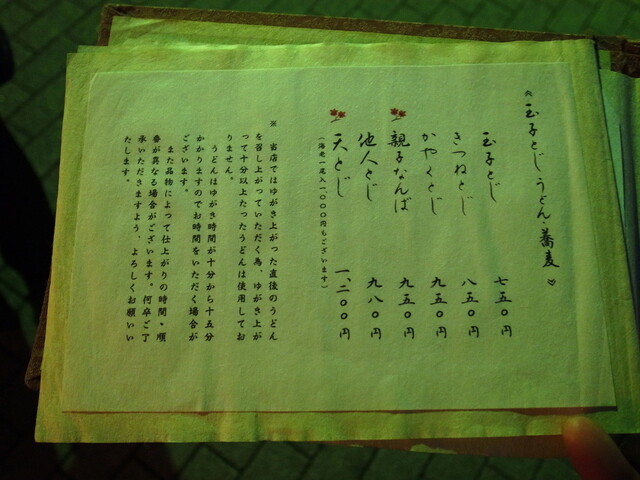 ≪ 玉子とじうどん・蕎麦 ≫
玉子とじ 七五〇円
きつねとじ 八五〇円
かやくとじ 九五〇円
親子なんば 九五〇円
他人とじ 九八〇円
天とじ 一、二〇〇円
(海老一尾入一、〇〇〇円もございます)
※ 当店ではゆがき上がった直後のうどん
を召し上がっていただく為、ゆがき上が
って十分以上たったうどんは使用してお
りません。
うどんはゆがき時間が十分から十五分
かかりますのでお時間をいただく場合が
ございます。
また品物によって仕上がりの時間・順
番が異なる場合がございます。何卒ご了
承いただきますよう、よろしくお願いい
たします。